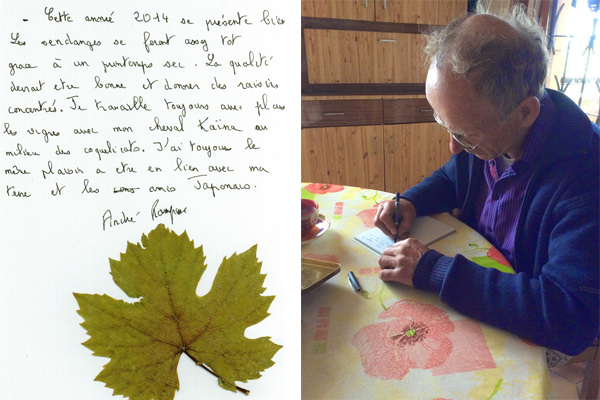 - Cette année 2014 se présente bien
Les vendanges se feront assez tot
grace à un printemps sec. La qualité
devrait etre bonne et donner des raisins
concentrés. Je travaille toujours avec plaisir
les vignes avec mon cheval Kaïna au
milieu des coquelicots. J'ai toujours le
même plaisir a etre en lien avec ma
terre et les amis Japonais.
André